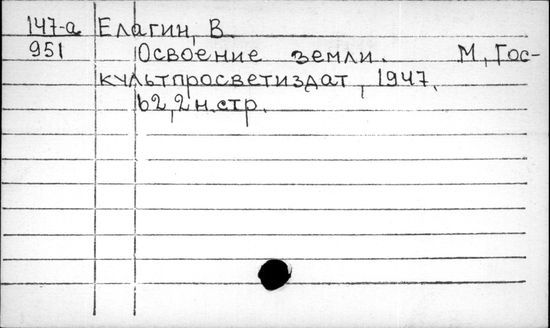 147-а Елагин, В.
951 Освоение земли. М, Гос-
культпросветиздат, 1947.
62, 2 н. стр.